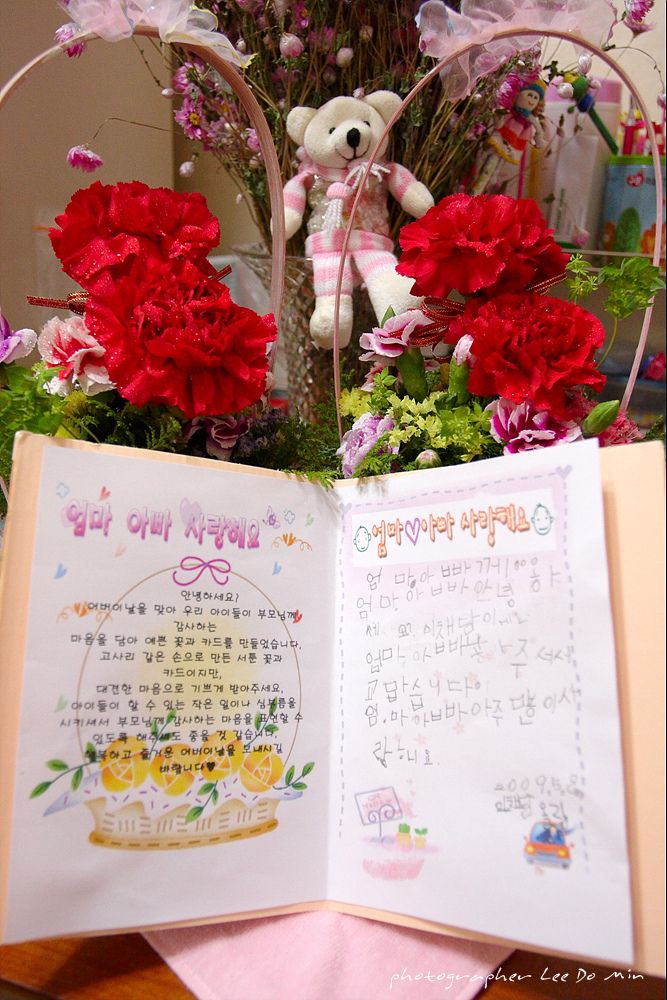 엄마 아빠 사랑해요
안녕하세요?
어버이날을 맞아 우리 아이들이 부모님께
감사하는
마음을 담아 예쁜 꽃과 카드를 만들었습니다.
고사리 같은 손으로 만든 서툰 꽃과
카드이지만,
대견한 마음으로 기쁘게 받아주세요.
아이들이 할 수 있는 작은 일이나 심부름을
시키셔서 부모님께 감사하는 마음을 표현할 수
있도록 해주셔도 좋을 것 같습니다.
행복하고 즐거운 어버이날을 보내시길
바랍니다♥
엄마♡아빠 사랑해요
엄마 아빠
엄마 아빠 안녕
세요
엄마 아빠
고맙습니다
엄마 아빠 아주
2009.5.8
photographer Lee Do Min